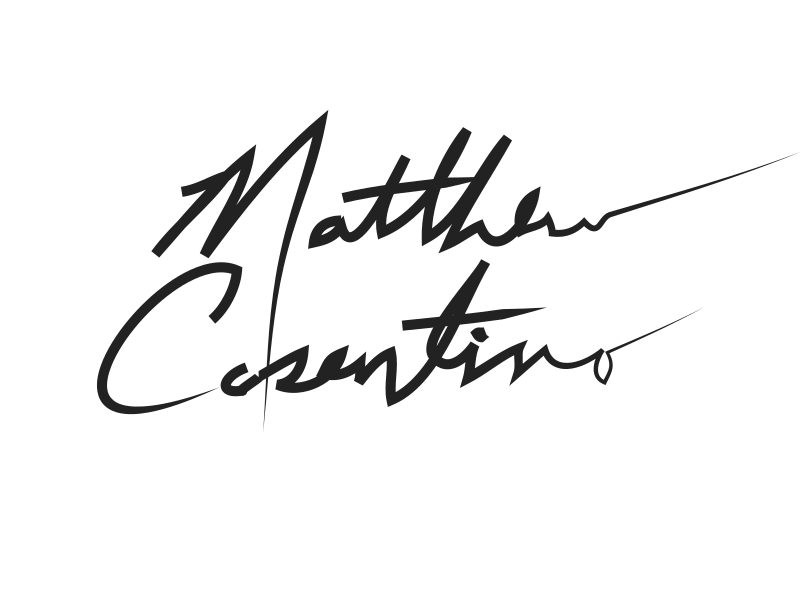 Matthew
Cosentino